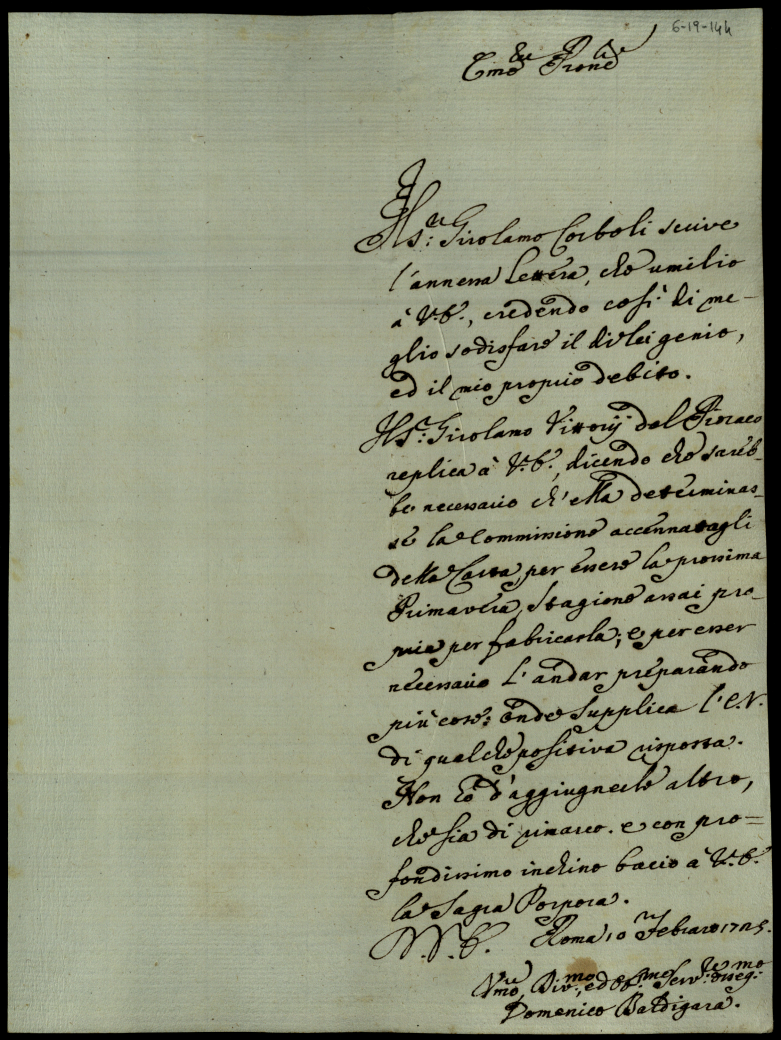 6-19-144
Em͠o e Rev. Prone
Il Sr. Girolamo Corboli scrive
l'annessa Lettera, che umilio
à V.E., credendo così di me-
glio sodisfare il di lei genio,
ed il mio proprio debito.
Il Sr. Girolamo Vittorij del Pioraco
replica à V.E., dicendo che sareb-
be necessario ch'ella determinas-
se la Commissione accennatagli
della Carta, per essere la prossima
Primavera, Stagione assai pro-
pria per fabricarla; e per esser
necessario l'andar preparando
più cose; onde supplica l'E.V.
di qualche positiva risposta.
Non hò d'aggiugnerle altro,
che sia di rimarco. e con pro=
fondissimo inchino bacio à V.E.
la Sagra Porpora.
D.V.E. Roma 10 Febraro 1725.
Um͠o, Div.mo, ed Obb.mo Serv.re osseq.mo
Domenico Baldigara.